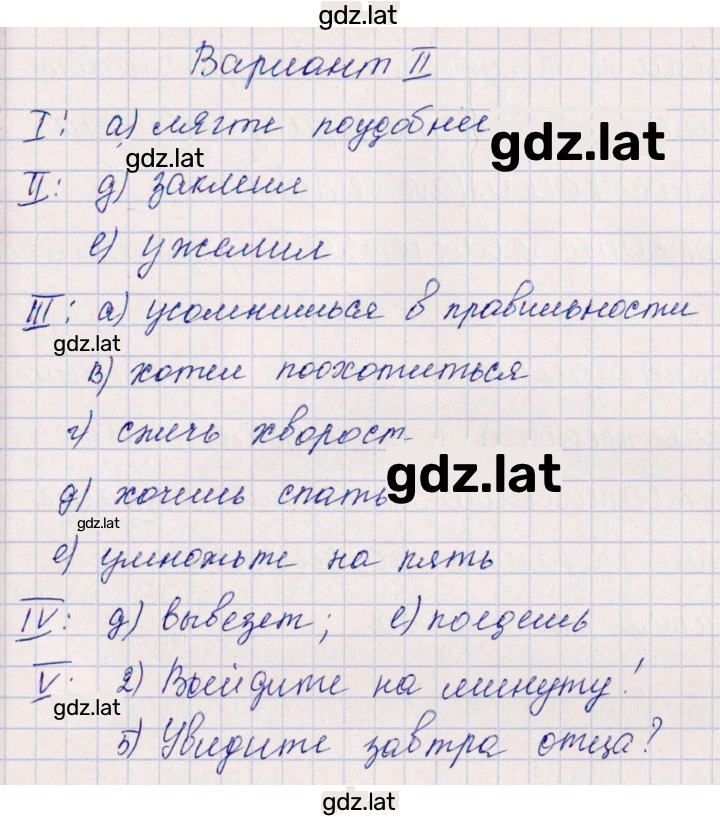 gdz.lat
Вариант II
I: а) лягте поудобнее
gdz.lat
gdz.lat
II: д) заклеил
е) ужалил
III: а) усомнишься в правильности
gdz.lat
в) хотел поохотиться
г) сжечь хворост
gdz.lat
д) хочешь спать
gdz.lat
е) умножьте на пять
IV: д) вывезет; е) поедешь
V: 2) Выйдите на минуту!
gdz.lat
5) Увидите завтра отца?
gdz.lat